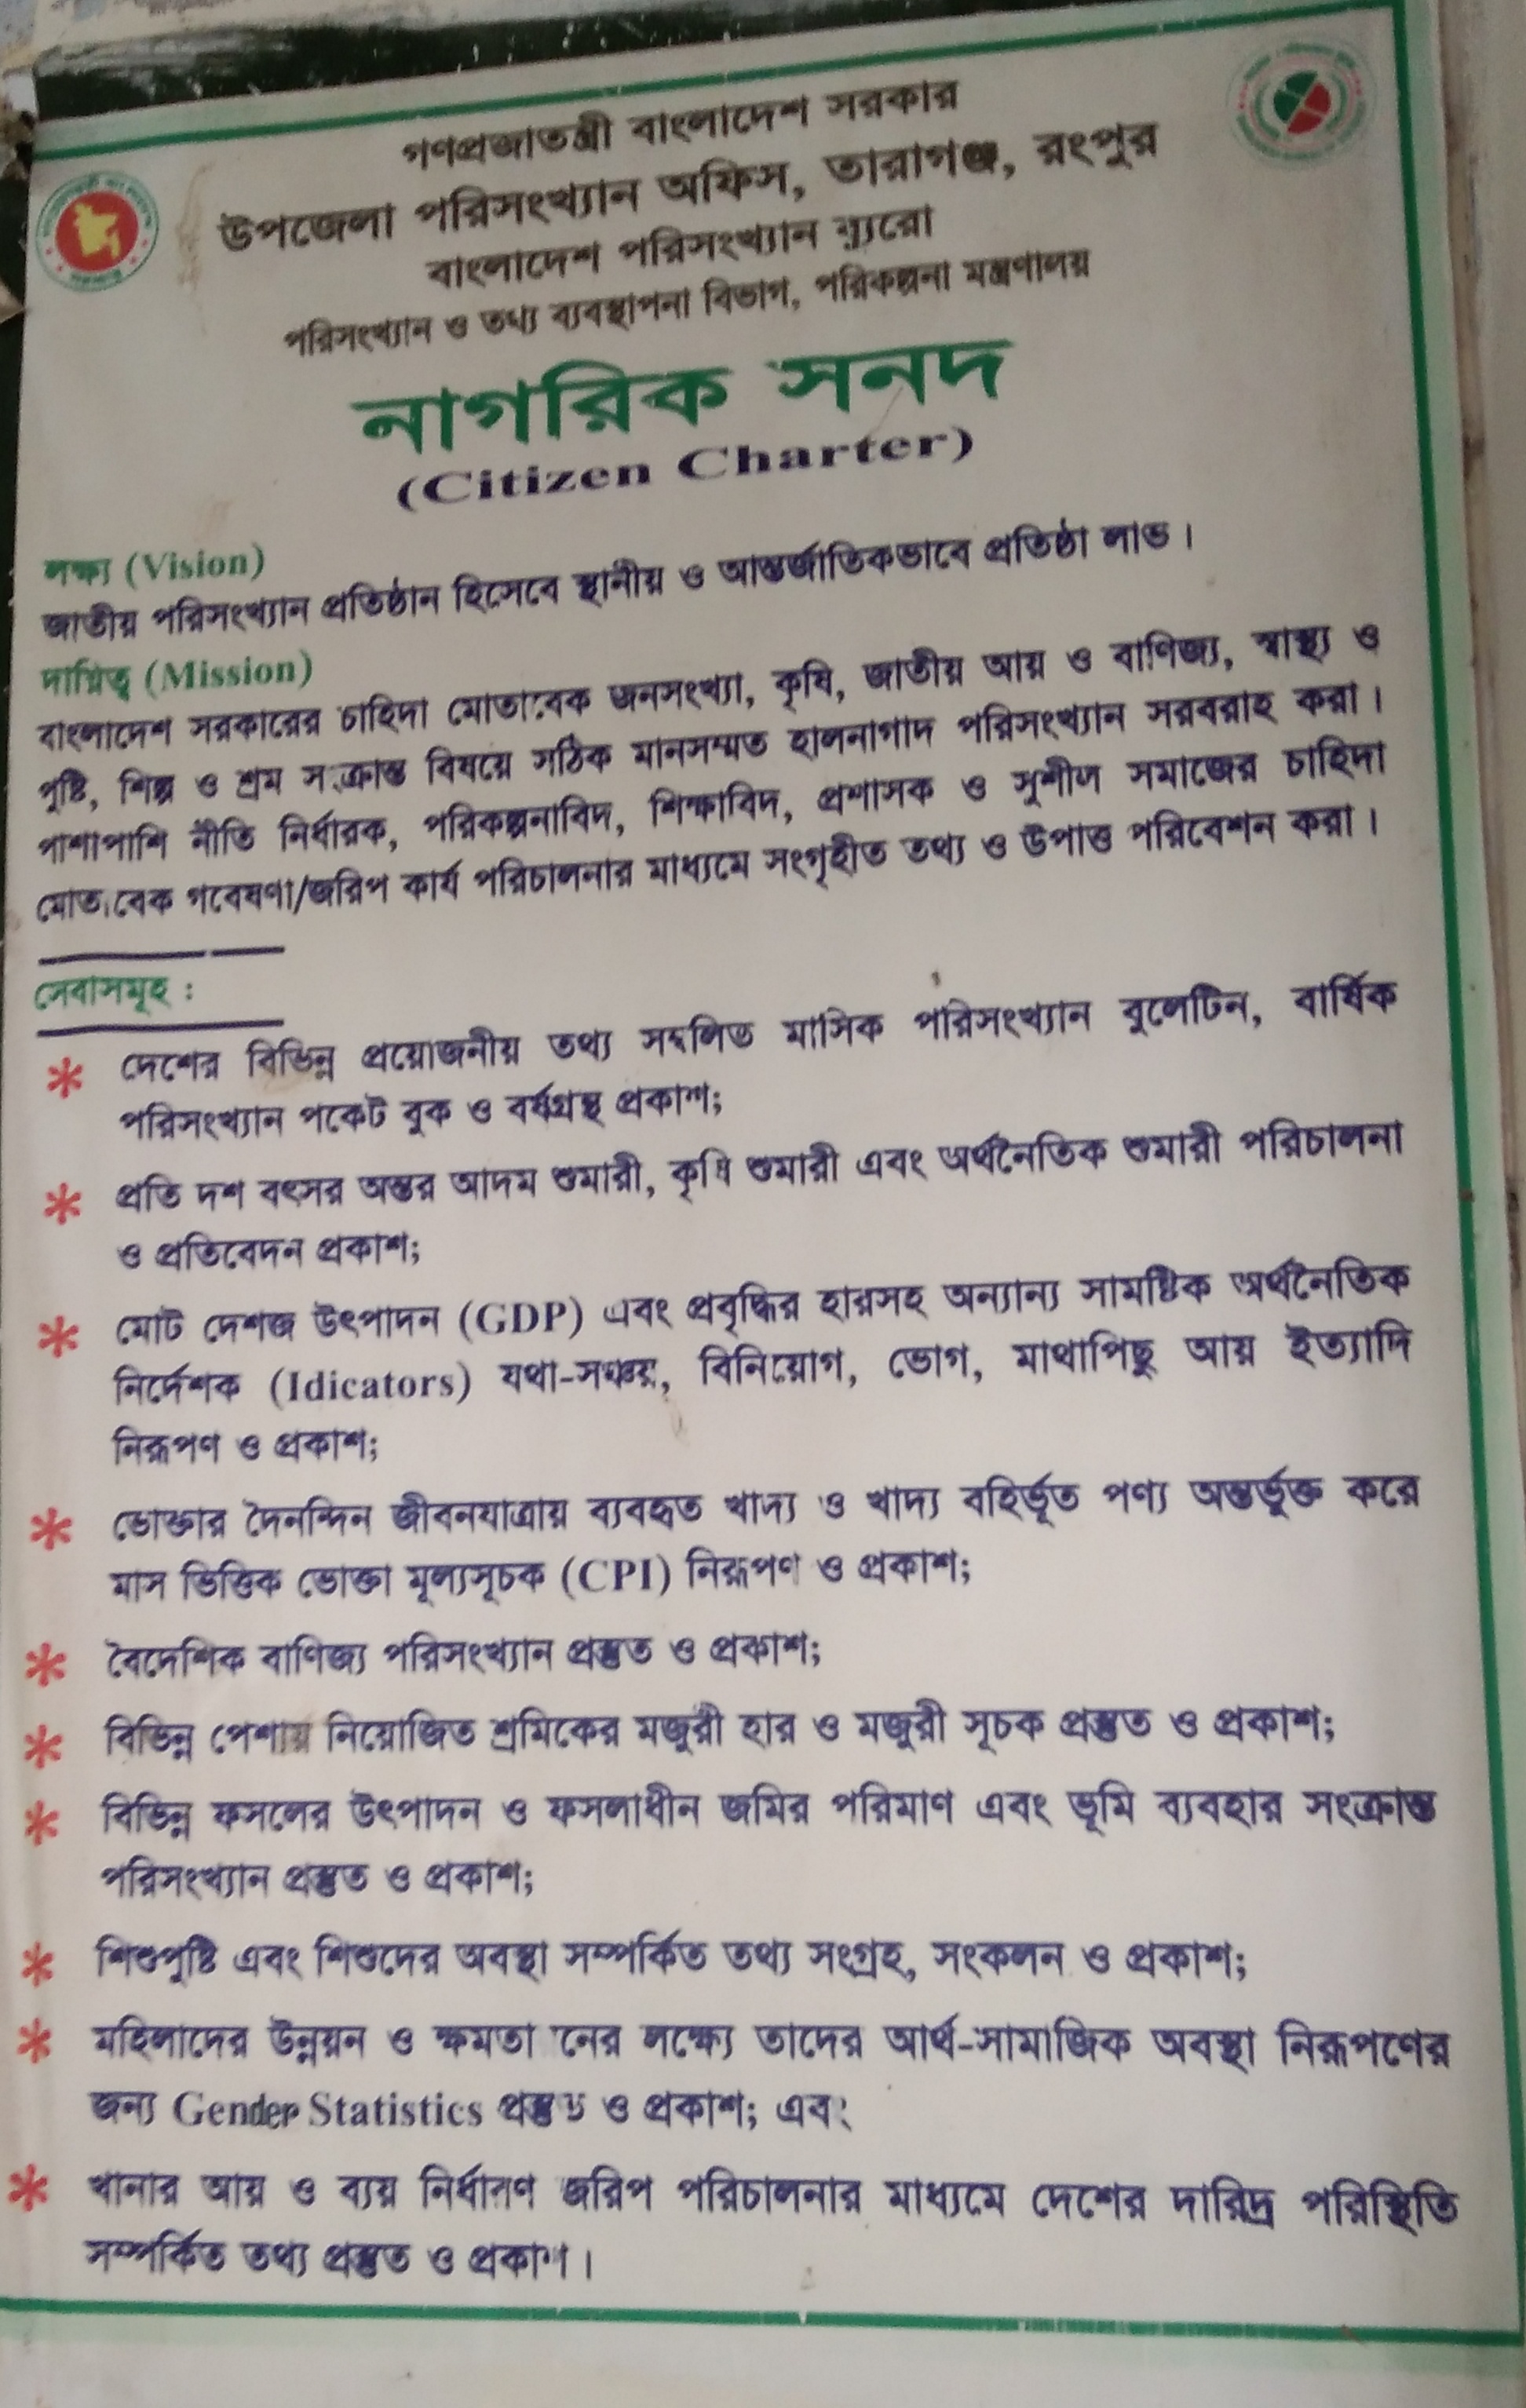 গণপ্রজাতন্ত্রী বাংলাদেশ সরকার
উপজেলা পরিসংখ্যান অফিস, তারাগঞ্জ, রংপুর
বাংলাদেশ পরিসংখ্যান ব্যুরো
পরিসংখ্যান ও তথ্য ব্যবস্থাপনা বিভাগ, পরিকল্পনা মন্ত্রণালয়
নাগরিক সনদ
(Citizen Charter)
লক্ষ্য (Vision)
জাতীয় পরিসংখ্যান প্রতিষ্ঠান হিসেবে স্থানীয় ও আন্তর্জাতিকভাবে প্রতিষ্ঠা লাভ।
দায়িত্ব (Mission)
বাংলাদেশ সরকারের চাহিদা মোতাবেক জনসংখ্যা, কৃষি, জাতীয় আয় ও বাণিজ্য, স্বাস্থ্য ও
পুষ্টি, শিল্প ও শ্রম সংক্রান্ত বিষয়ে সঠিক মানসম্মত হালনাগাদ পরিসংখ্যান সরবরাহ করা।
পাশাপাশি নীতি নির্ধারক, পরিকল্পনাবিদ, শিক্ষাবিদ, প্রশাসক ও সুশীল সমাজের চাহিদা
মোতাবেক গবেষণা/জরিপ কার্য পরিচালনার মাধ্যমে সংগৃহীত তথ্য ও উপাত্ত পরিবেশন করা।
সেবাসমূহ :
* দেশের বিভিন্ন প্রয়োজনীয় তথ্য সম্বলিত মাসিক পরিসংখ্যান বুলেটিন, বার্ষিক
পরিসংখ্যান পকেট বুক ও বর্ষগ্রন্থ প্রকাশ;
* প্রতি দশ বৎসর অন্তর আদম শুমারী, কৃষি শুমারী এবং অর্থনৈতিক শুমারী পরিচালনা
ও প্রতিবেদন প্রকাশ;
* মোট দেশজ উৎপাদন (GDP) এবং প্রবৃদ্ধির হারসহ অন্যান্য সামষ্টিক অর্থনৈতিক
নির্দেশক (Idicators) যথা-সঞ্চয়, বিনিয়োগ, ভোগ, মাথাপিছু আয় ইত্যাদি
নিরূপণ ও প্রকাশ;
* ভোক্তার দৈনন্দিন জীবনযাত্রায় ব্যবহৃত খাদ্য ও খাদ্য বহির্ভূত পণ্য অন্তর্ভুক্ত করে
মাস ভিত্তিক ভোক্তা মূল্যসূচক (CPI) নিরূপণ ও প্রকাশ;
* বৈদেশিক বাণিজ্য পরিসংখ্যান প্রস্তুত ও প্রকাশ;
* বিভিন্ন পেশায় নিয়োজিত শ্রমিকের মজুরী হার ও মজুরী সূচক প্রস্তুত ও প্রকাশ;
* বিভিন্ন ফসলের উৎপাদন ও ফসলাধীন জমির পরিমাণ এবং ভূমি ব্যবহার সংক্রান্ত
পরিসংখ্যান প্রস্তুত ও প্রকাশ;
* শিশুপুষ্টি এবং শিশুদের অবস্থা সম্পর্কিত তথ্য সংগ্রহ, সংকলন ও প্রকাশ;
* মহিলাদের উন্নয়ন ও লক্ষ্যে তাদের আর্থ-সামাজিক অবস্থা নিরূপণের
জন্য Gender Statistics প্রস্তুত ও প্রকাশ; এবং
* খানার আয় ও ব্যয় নির্ধারণ জরিপ পরিচালনার মাধ্যমে দেশের দারিদ্র পরিস্থিতি
সম্পর্কিত তথ্য প্রস্তুত ও প্রকাশ।